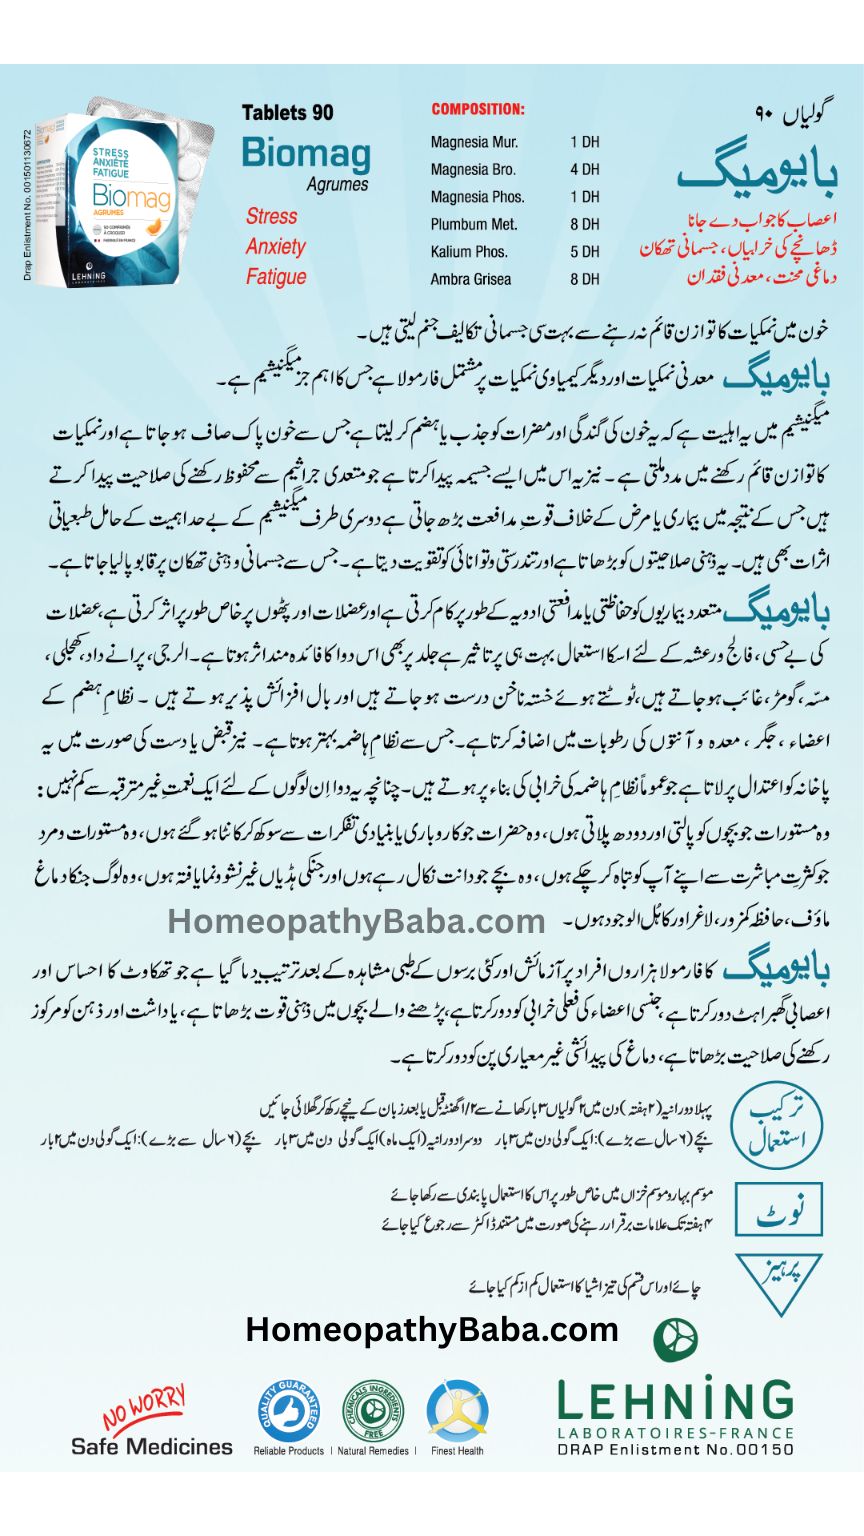 Drap Enlistment No. 001501130672
STRESS
ANXIÉTÉ
FATIGUE
Biomag
AGRUMES
90 COMPRIMÉS
À CROQUER
LEHNING
LABORATOIRES
Tablets 90
Biomag
Agrumes
Stress
Anxiety
Fatigue
COMPOSITION:
Magnesia Mur. 1 DH
Magnesia Bro. 4 DH
Magnesia Phos. 1 DH
Plumbum Met. 8 DH
Kalium Phos. 5 DH
Ambra Grisea 8 DH
گولیاں ۹۰
بایومیگ
اعصاب کا جواب دے جانا
ڈھانچے کی خرابیاں، جسمانی تھکان
دماغی محنت، معدنی فقدان
خون میں نمکیات کا توازن قائم نہ رہنے سے بہت سی جسمانی تکالیف جنم لیتی ہیں۔
بایومیگ معدنی نمکیات اور دیگر کیمیاوی نمکیات پر مشتمل فارمولا ہے جس کا اہم جز میگنیشیم ہے۔
میگنیشیم میں یہ اہلیت ہے کہ یہ خون کی گندگی اور مضرات کو جذب یا ہضم کر لیتا ہے جس سے خون پاک صاف ہو جاتا ہے اور نمکیات
کا توازن قائم رکھنے میں مدد ملتی ہے ۔ نیز یہ اس میں ایسے جسیمہ پیدا کرتا ہے جو متعدی جراثیم سے محفوظ رکھنے کی صلاحیت پیدا کرتے
ہیں جس کے نتیجہ میں بیماری یا مرض کے خلاف قوتِ مدافعت بڑھ جاتی ہے دوسری طرف میگنیشیم کے بے حد اہمیت کے حامل طبعیاتی
اثرات بھی ہیں۔ یہ ذہنی صلاحیتوں کو بڑھاتا ہے اور تندرستی و توانائی کو تقویت دیتا ہے۔ جس سے جسمانی و ذہنی تھکان پر قابو پا لیا جاتا ہے۔
بایومیگ متعدد بیماریوں کو حفاظتی یا مدافعتی ادویہ کے طور پر کام کرتی ہے اور عضلات اور پٹھوں پر خاص طور پر اثر کرتی ہے، عضلات
کی بے حسی ، فالج ورعشہ کے لئے اسکا استعمال بہت ہی پر تاثیر ہے جلد پر بھی اس دوا کا فائدہ مند اثر ہوتا ہے۔ الرجی، پرانے داد، کھجلی،
مسّہ، گومڑ، غائب ہو جاتے ہیں، ٹوٹتے ہوئے خستہ ناخن درست ہو جاتے ہیں اور بال افزائش پذیر ہوتے ہیں ۔ نظامِ ہضم کے
اعضاء ، جگر ، معدہ و آنتوں کی رطوبات میں اضافہ کرتا ہے۔ جس سے نظامِ ہاضمہ بہتر ہوتا ہے ۔ نیز قبض یا دست کی صورت میں یہ
پاخانہ کو اعتدال پر لاتا ہے جو عموماً نظامِ ہاضمہ کی خرابی کی بناء پر ہوتے ہیں۔ چنانچہ یہ دوا اِن لوگوں کے لئے ایک نعمتِ غیر مترقبہ سے کم نہیں :
وہ مستورات جو بچوں کو پالتی اور دودھ پلاتی ہوں، وہ حضرات جو کاروباری یا بنیادی تفکرات سے سوکھ کر کانٹا ہو گئے ہوں، وہ مستورات و مرد
جو کثرتِ مباشرت سے اپنے آپ کو تباہ کر چکے ہوں ، وہ بچے جو دانت نکال رہے ہوں اور جنکی ہڈیاں غیر نشوونما یافتہ ہوں، وہ لوگ جنکا دماغ
ماؤف، حافظہ کمزور، لاغر اور کاہل الوجود ہوں۔ HomeopathyBaba.com
بایومیگ کا فارمولا ہزاروں افراد پر آزمائش اور کئی برسوں کے طبی مشاہدہ کے بعد ترتیب دیا گیا ہے جو تھکاوٹ کا احساس اور
اعصابی گھبراہٹ دور کرتا ہے، جنسی اعضاء کی فعلی خرابی کو دور کرتا ہے، پڑھنے والے بچوں میں ذہنی قوت بڑھاتا ہے، یاداشت اور ذہن کو مرکوز
رکھنے کی صلاحیت بڑھاتا ہے، دماغ کی پیدائشی غیر معیاری پن کو دور کرتا ہے۔
ترکیب
استعمال
پہلا دورانیہ (۲ ہفتہ) دن میں ۲ گولیاں ۳ بار کھانے سے ۱/۲ گھنٹہ قبل یا بعد زبان کے نیچے رکھ کر گھلائی جائیں
بچے (۶ سال سے بڑے): ایک گولی دن میں ۳ بار دوسرا دورانیہ (ایک ماہ) ایک گولی دن میں ۳ بار بچے (۶ سال سے بڑے): ایک گولی دن میں ۲ بار
نوٹ
موسم بہار و موسم خزاں میں خاص طور پر اس کا استعمال پابندی سے رکھا جائے
۴ ہفتہ تک علامات برقرار رہنے کی صورت میں مستند ڈاکٹر سے رجوع کیا جائے
پرہیز
چائے اور اس قسم کی تیز اشیا کا استعمال کم از کم کیا جائے
HomeopathyBaba.com
NO WORRY
Safe Medicines
QUALITY GUARANTEED
Reliable Products
CHEMICALS INGREDIENTS FREE
Natural Remedies
Finest Health
LEHNING
LABORATOIRES-FRANCE
DRAP Enlistment No.00150